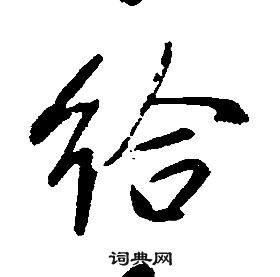 给
词典网